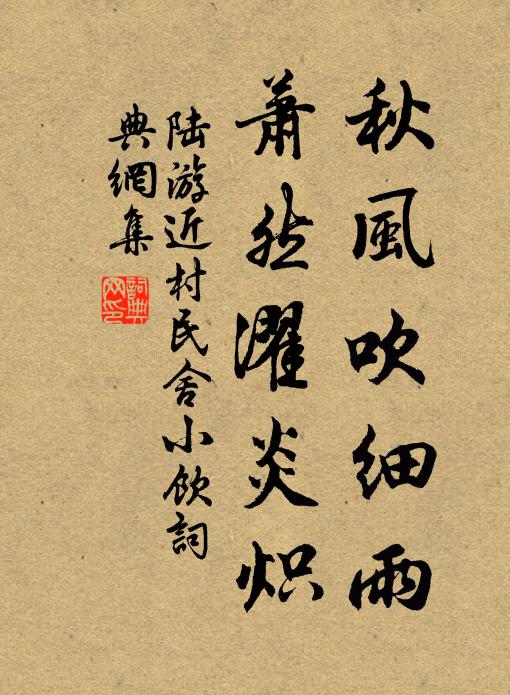 秋風吹細雨
蕭然濯炎炽
陆游近村民舍小飲詞
典網集
詞典
网印